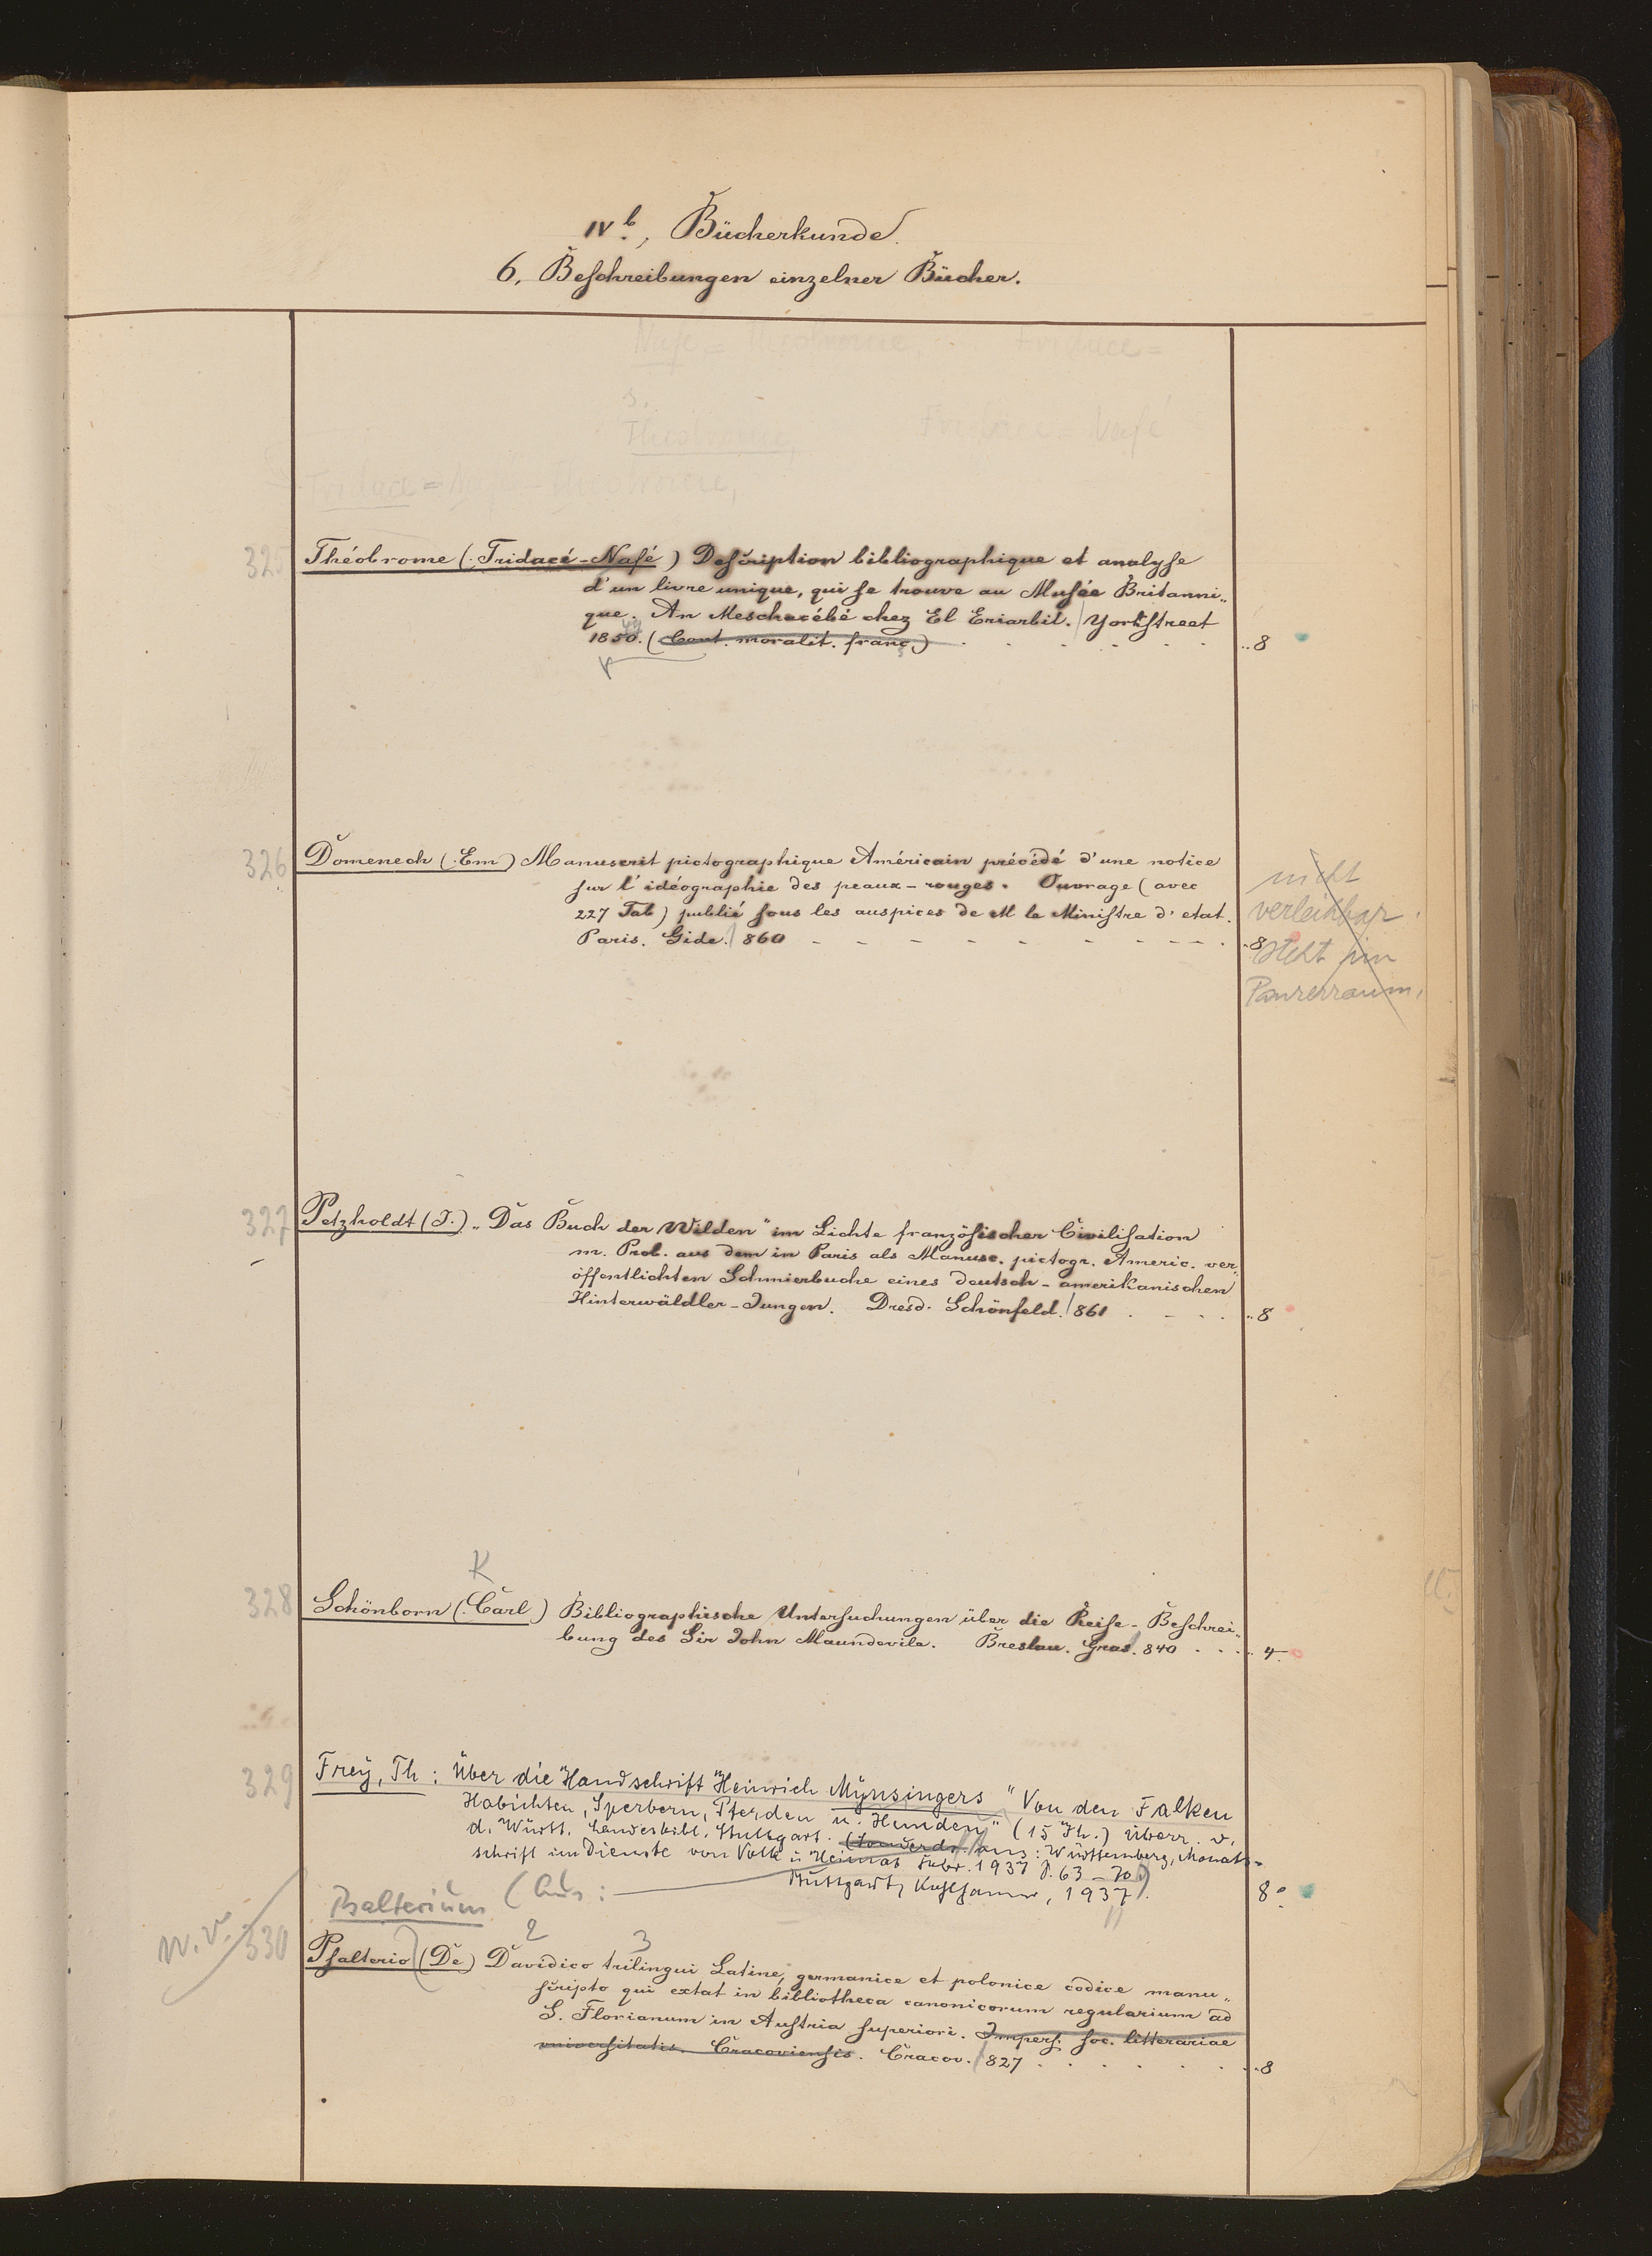 IVb, Bücherkunde.
6. Beschreibungen einzelner Bücher.
Nafé = Théobrome, Tridace =
s.
Théobrome, Tridace = Nafé
Tridace = Nafé - Théobrome,
325 Théobrome (Tridacé-Nafé) Description bibliographique et analyse
d'un livre unique, qui se trouve au Musée Britanni„
que. An Meschacébé chez El Eriarbil. Yorkstreet
1850. (Cont. moralit. franç.) „8
326 Domenech (Em) Manuscrit pictographique Américain précédé d'une notice
sur l'idéographie des peaux-rouges. Ouvrage (avec
227 Tab) publié sous les auspices de M le Ministre d'etat.
Paris. Gide. 860 „8
nicht
verleihbar.
Steht im
Panzerraum.
327 Petzholdt (J.) „Das Buch der Wilden" im Lichte französischer Civilisation
m. Prob. aus dem in Paris als Manusc. pictogr. Americ. ver„
öffentlichten Schmierbuche eines deutsch-amerikanischen
Hinterwäldler-Jungen. Dresd. Schönfeld. 861 „8
K
328 Schönborn (Carl) Bibliographische Untersuchungen über die Reise-Beschrei„
bung des Sir John Maundevile. Breslau. Gras. 840 „4.
329 Frey, Th: Über die Handschrift Heinrich Mynsingers "Von den Falken
Habichten, Sperbern, Pferden u. Hunden" (15 Jh.) Überr. v.
d. Württ. Landesbibl. Stuttgart. (Sonderdr. aus: Württemberg, Monats-
schrift im Dienste von Volk u Heimat Febr. 1937 p. 63-70)
Stuttgart, Kohlhammer, 1937. 8°
Psalterium (Aus:
2 3
W.V. 330 Psalterio (De) Davidico trilingui Latine, germanice et polonice codice manu„
scripto qui extat in bibliotheca canonicorum regularium ad
S. Florianum in Austria superiori. Impens. soc. litterariae
universitatis. Cracoviensis. Cracov. 827 „8